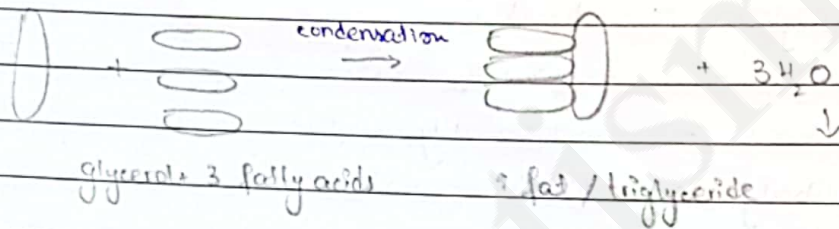 condensation
+ → + 3H₂O
↓
glycerol + 3 fatty acids : fat / triglyceride